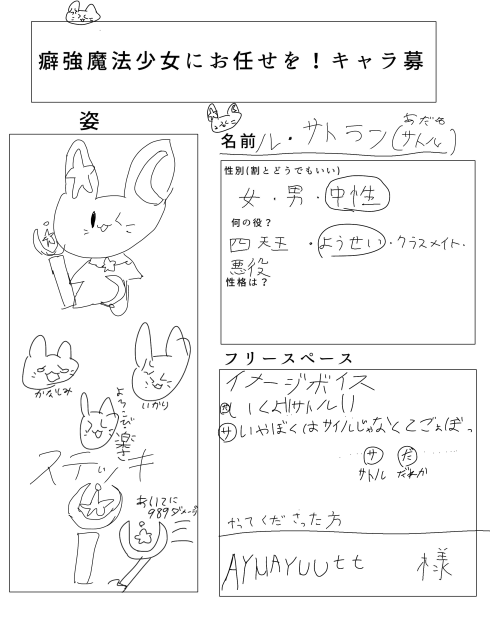 癖強魔法少女にお任せを！キャラ募
姿
名前 ル・サトラン(サトル)
あだ名
性別(割とどうでもいい)
女・男・中性
何の役？
四天王・ようせい・クラスメイト・
悪役
性格は？
かなしみ
いかり
よろこび・楽さ
ステッキ
あいてに
989ダメージ
フリースペース
イメージボイス
だ いくよ!!サトル!!
サ いやぼくはサイルじゃなくてごぉぼっ
サ だ
サトル だれか
やってくださった方
AYMAYUUtt 様